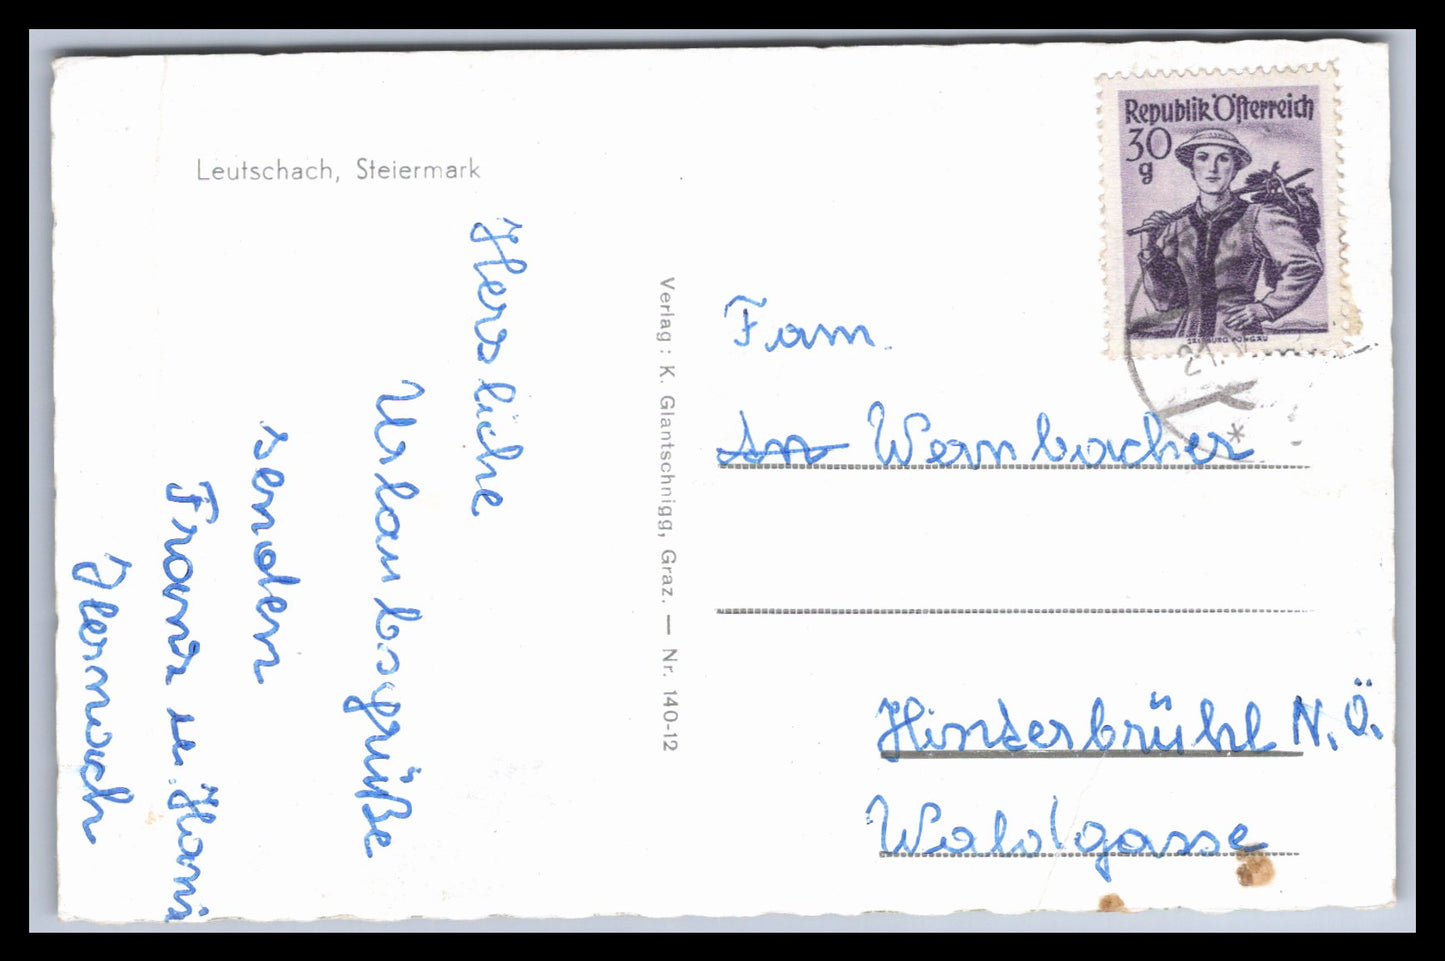 Leutschach, Steiermark
Herzliche
Urlaubsgrüße
senden
Franz u. Hami
Verlag: K. Glantschnigg, Graz. — Nr. 140-12
Republik Österreich
30
g
SALZBURG, PONGAU
21.V
Fam.
An Wernbacher
Hinterbrühl N.Ö.
Waldgasse